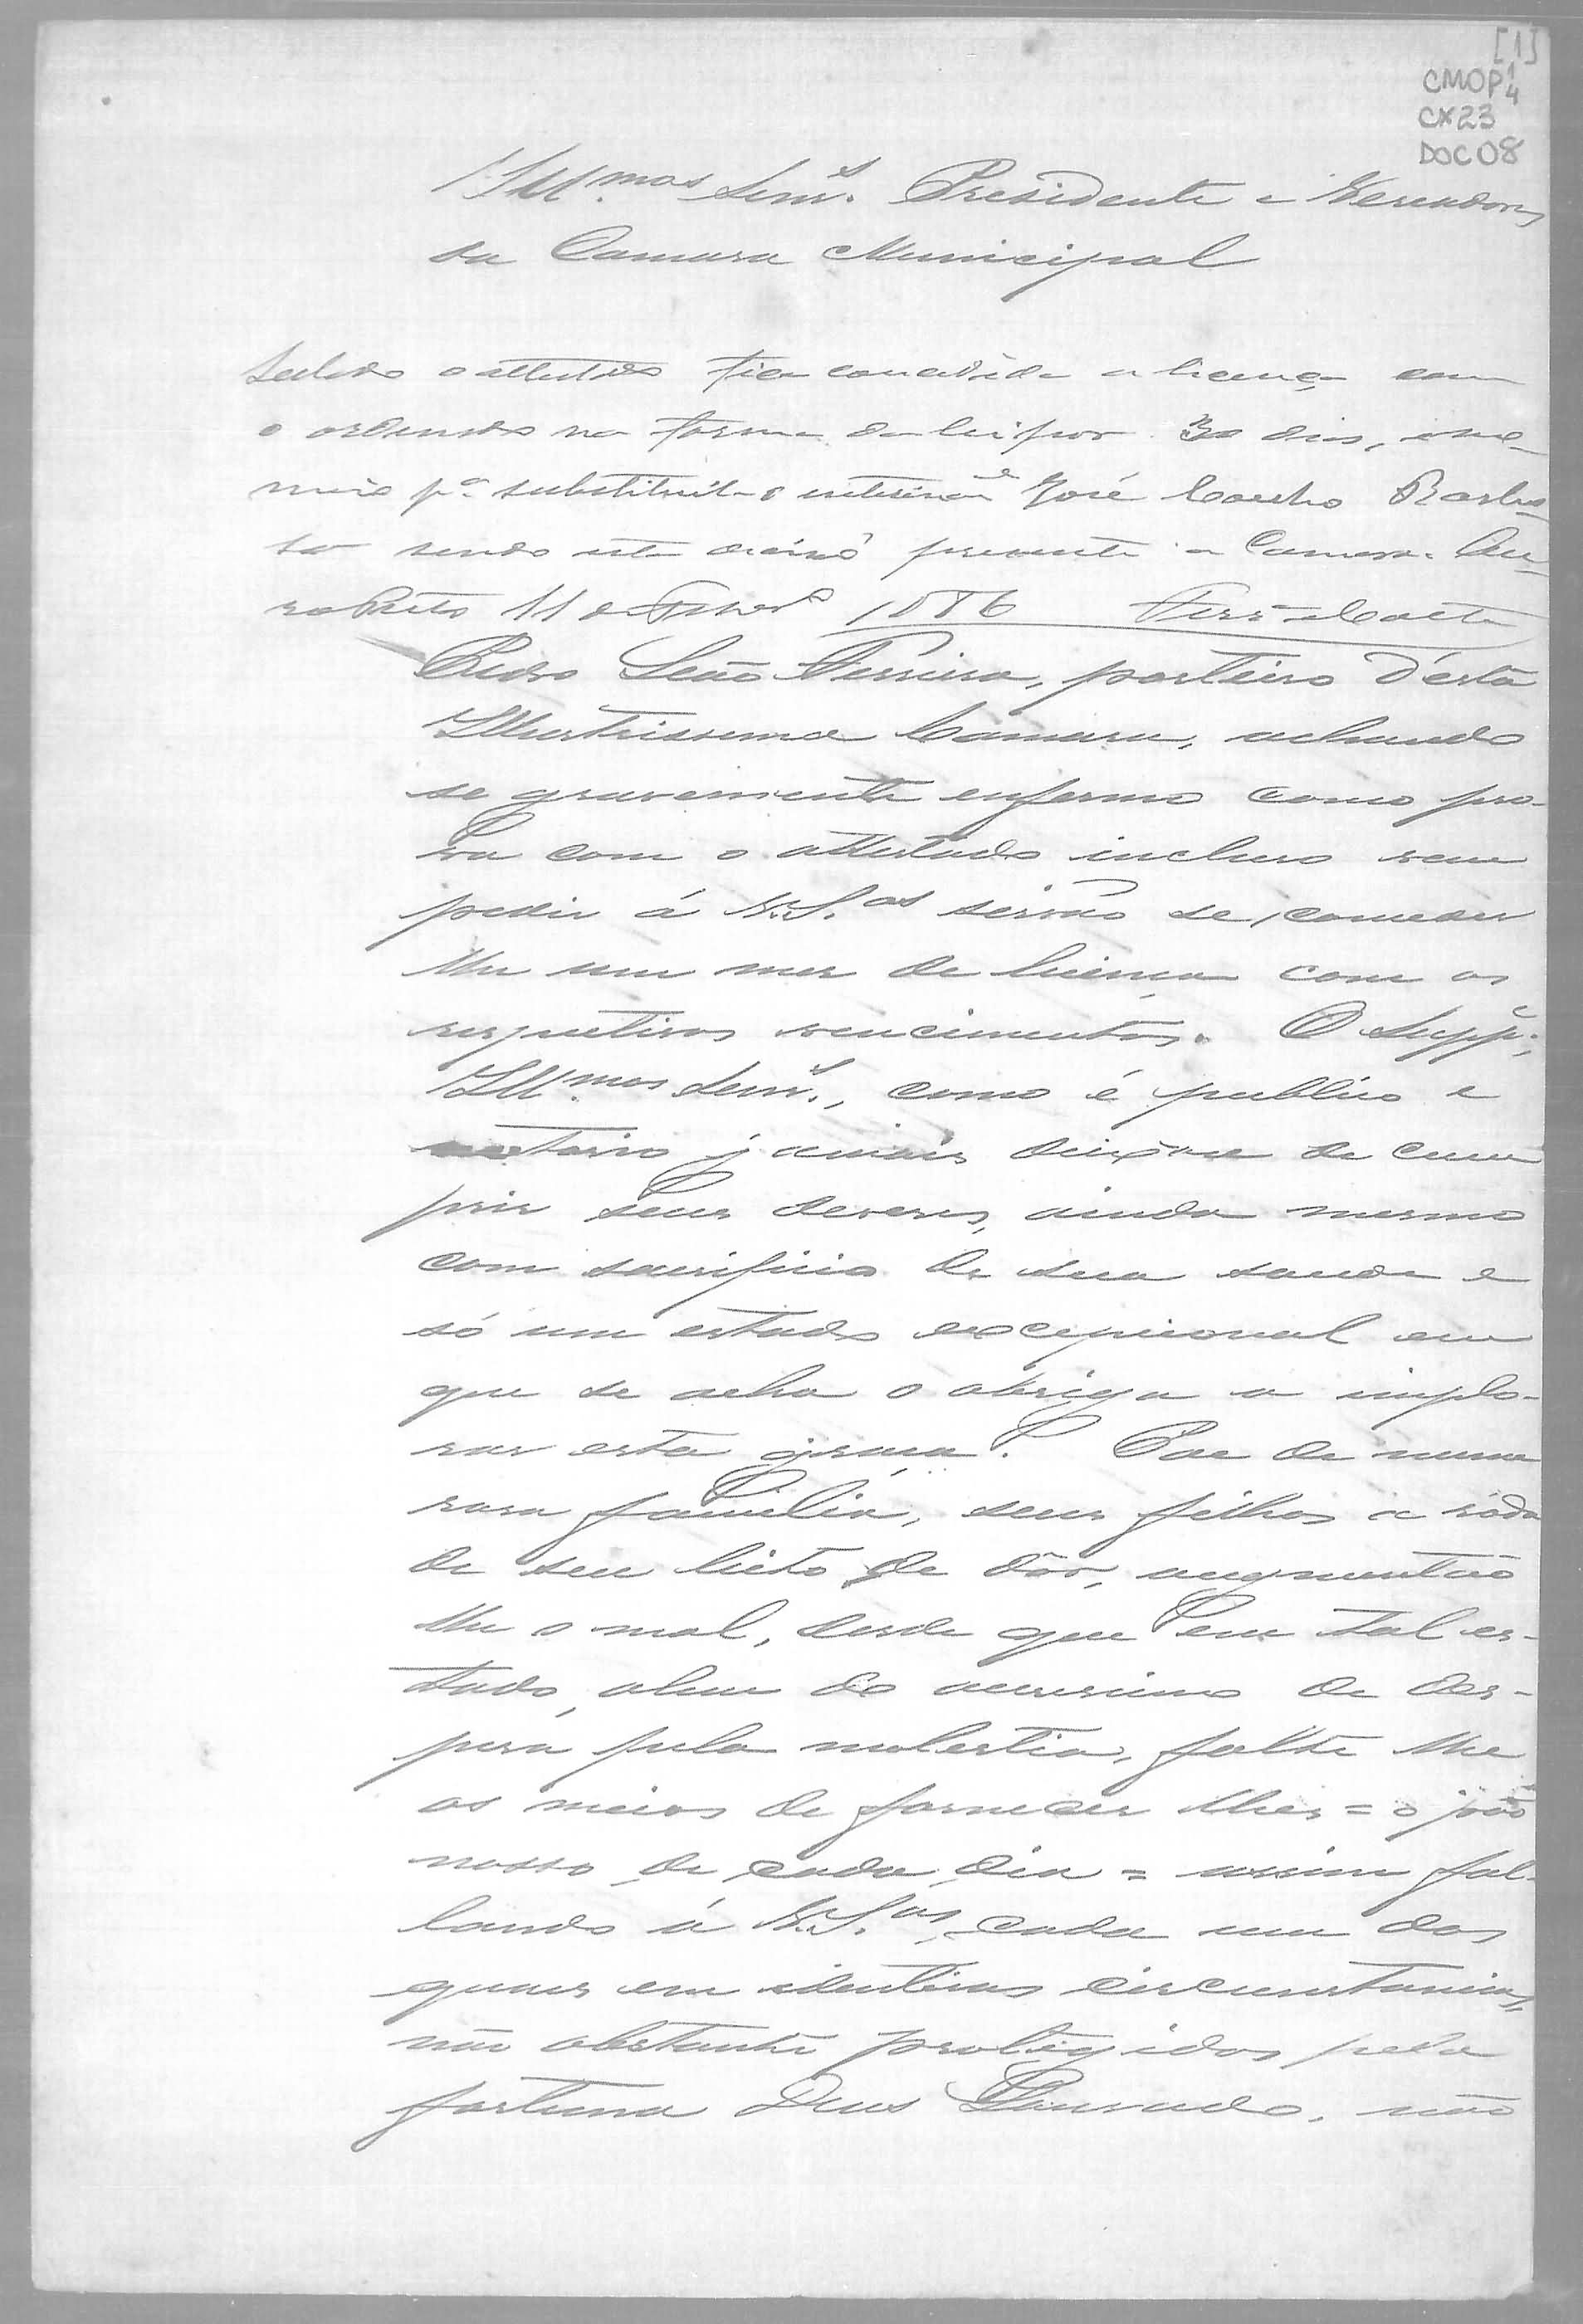 [1]
CMOP 1/4
CX23
DOC 08
Illmos. Senrs. Presidente e Vereadores
da Camara Municipal
Sellado o attestado fica concedida a licença com
o ordenado na forma da lei por 30 dias, e no-
meio pa. substituil-o interinamte José Coelho Barbo-
sa sendo esta decisão presente a Camara. Ou-
ro Preto 11 de 1886
Pedro Leão Ferreira, porteiro d'esta
Illustrissima Camara, achando
se gravemente enfermo como pro-
va com o attestado incluso vem
pedir á V.S.as sirvão se conceder
lhe um mez de licença com os
respectivos vencimentos. O Suppe.,
Illmos. Senrs., como é publico e
notorio jamais deixou de cum
prir seus deveres, ainda mesmo
com sacrificio de sua saude e
só um estado excepcional em
que se acha o obriga a implo-
rar esta graça. Pae de nume
rosa familia, seus filhos a roda
de seu leito de dôr, augmentão
lhe o mal, desde que em tal es-
tado, alem do accrescimo de des-
peza pela molestia, falta lhe
os meios de fornecer lhes = o pão
nosso de cada dia = assim fal-
lando á V.S.as, cada um dos
quaes em identicas circumstancias,
não obstante protegidos pela
fortuna Deus Louvado, não